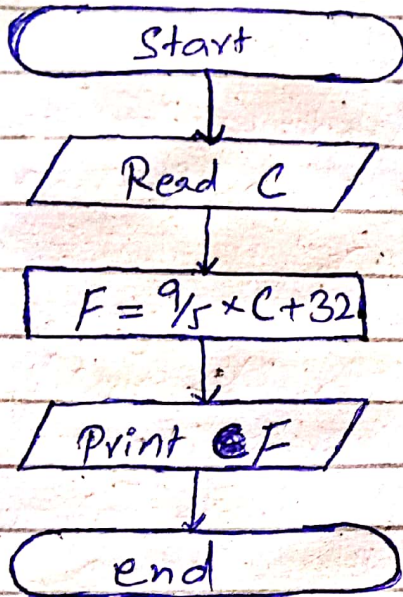 Start
Read C
F = 9/5 × C + 32
Print F
end